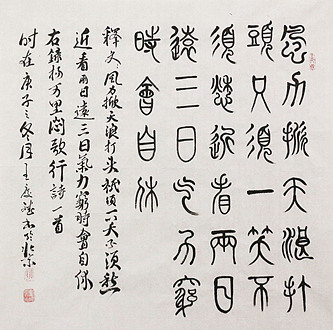 風力掀天浪打
頭只須一笑不
須愁近看兩日
遠三日气力窮
時會自休
釋文風力掀天浪打头祇須一笑不須愁
近看兩日遠三日氣力窮時會自休
右録楊万里悶歌行詩一首
时在庚子之冬月王於北京